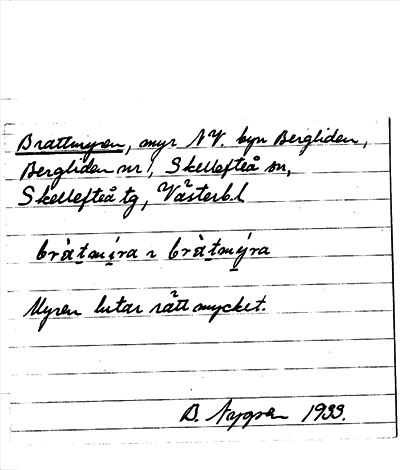 Brattmyren, myr NV. byn Bergliden,
Bergliden nr 1, Skellefteå sn,
Skellefteå tg, Västerb.l
bràt̲mí̲ra ɂ bràt̲mý̲ra
Myren lutar rätt mycket.
B. Nygren 1933.